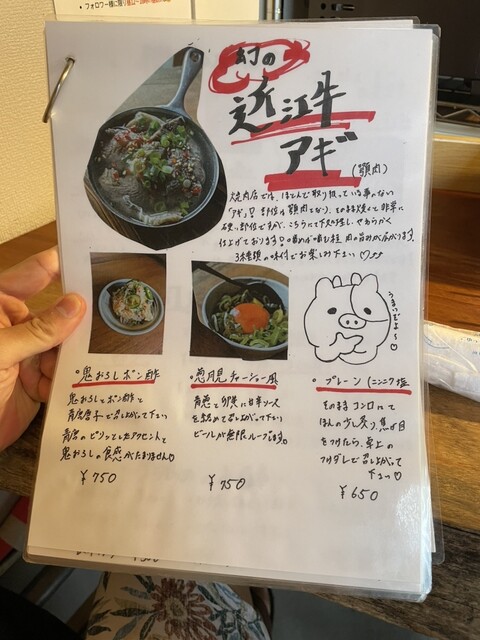 幻の
近江牛
アギ
(顎肉)
焼肉店では、ほとんど取り扱っている事のない
「アギ」!部位は顎肉となり、そのまま焼くと非常に
硬い部位ですが、こちらにて下処理し、やわらかく
仕上げております!噛めば噛む程、肉の旨みが広がります。
3種類の味付でお楽しみ下さい♡
うまいでよ〜♡
・鬼おろしポン酢
鬼おろしとポン酢と
青唐辛子で召し上がって下さい
青唐のピリッとしたアクセントと
鬼おろしの食感がたまりません♡
¥750
・葱月見チャーシュー風
青葱と卵黄に甘辛ソース
を絡めて召し上がって下さい
ビールが無限ループします。
¥750
・プレーン(ニンニク塩
そのままコンロにて
ほんの少し炙り、焦げ目
をつけたら、卓上の
つけダレで召し上がって
下さい♡
¥650